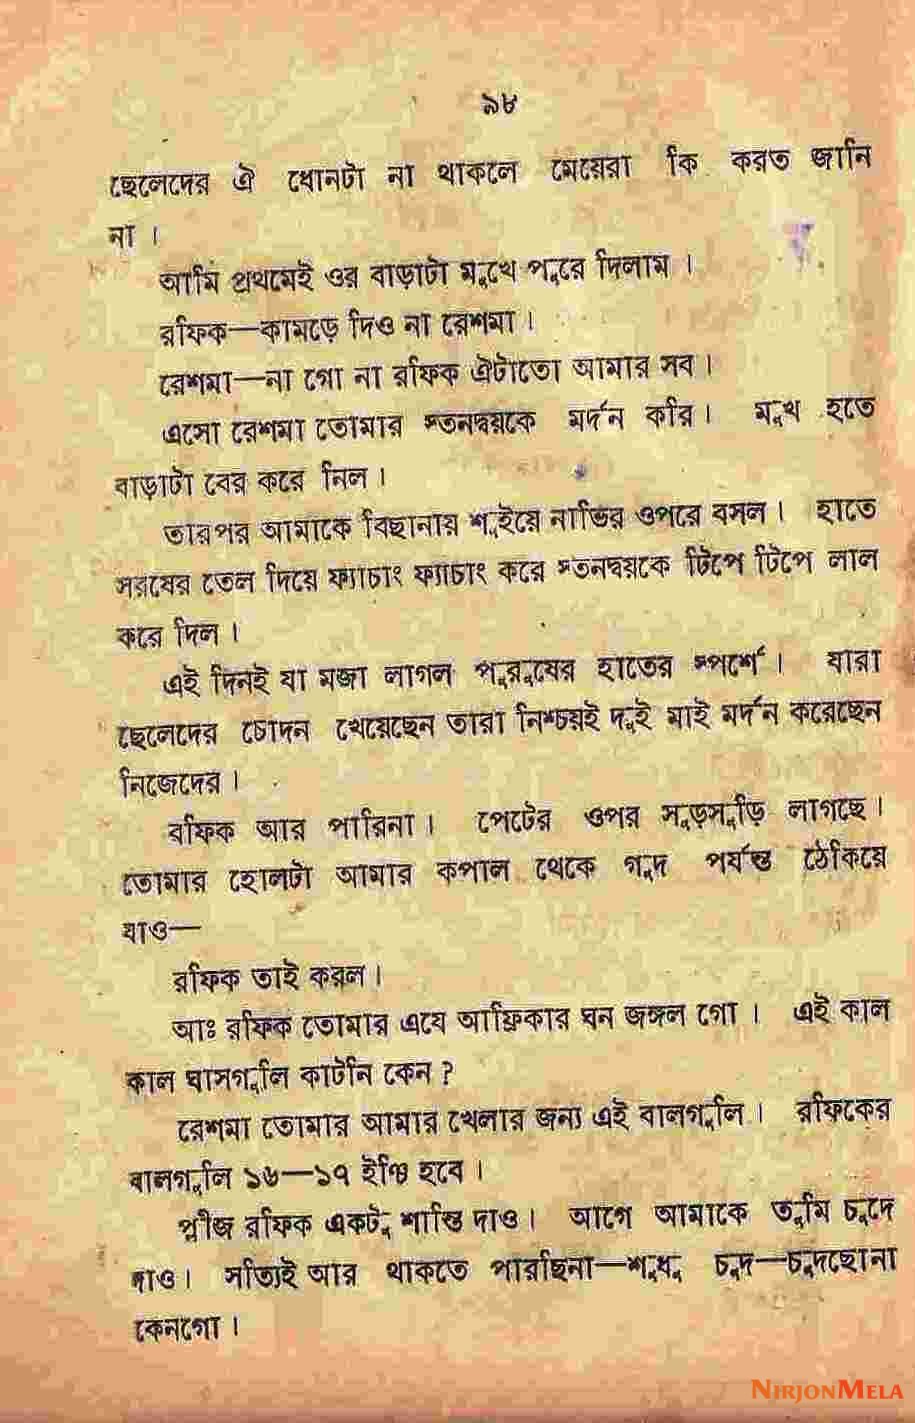 ৯৮
ছেলেদের ঐ ধোনটা না থাকলে মেয়েরা কি করত জানি
না ।
আমি প্রথমেই ওর বাড়াটা মুখে পুরে দিলাম ।
রফিক—কামড়ে দিও না রেশমা ।
রেশমা—না গো না রফিক ঐটাতো আমার সব ।
এসো রেশমা তোমার স্তনদ্বয়কে মর্দন করি । মুখ হতে
বাড়াটা বের করে নিল ।
তারপর আমাকে বিছানায় শুইয়ে নাভির ওপরে বসল । হাতে
সরষের তেল দিয়ে ফ্যাচাং ফ্যাচাং করে স্তনদ্বয়কে টিপে টিপে লাল
করে দিল ।
এই দিনই যা মজা লাগল পুরুষের হাতের স্পর্শে । যারা
ছেলেদের চোদন খেয়েছেন তারা নিশ্চয়ই দুই মাই মর্দন করেছেন
নিজেদের ।
রফিক আর পারিনা । পেটের ওপর সুড়সুড়ি লাগছে ।
তোমার হোলটা আমার কপাল থেকে গুদ পর্যন্ত ঠেকিয়ে
যাও—
রফিক তাই করল ।
আঃ রফিক তোমার এযে আফ্রিকার ঘন জঙ্গল গো । এই কাল
কাল ঘাসগুলি কাটনি কেন ?
রেশমা তোমার আমার খেলার জন্য এই বালগুলি । রফিকের
বালগুলি ১৬—১৭ ইঞ্চি হবে ।
প্লীজ রফিক একটু শান্তি দাও । আগে আমাকে তুমি চুদে
দাও । সত্যিই আর থাকতে পারছিনা—শুধু চুদ—চুদছোনা
কেনগো ।
NIRJONMELA